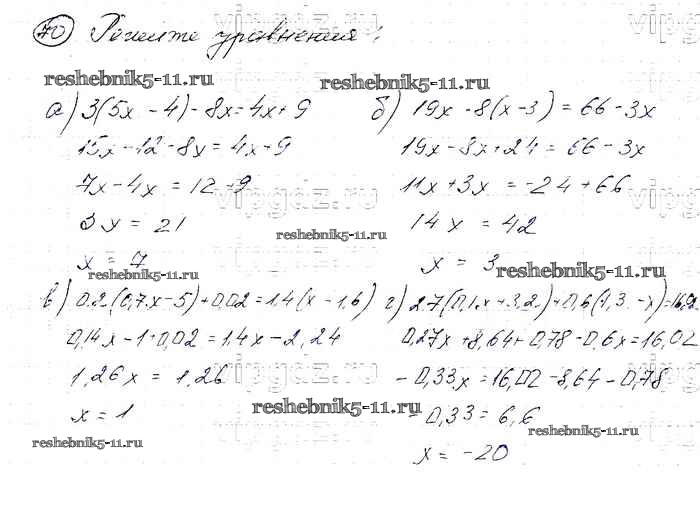 70 Решите уравнения:
vipgdz.ru
reshebnik5-11.ru
reshebnik5-11.ru
а) 3(5x - 4) - 8x = 4x + 9
15x - 12 - 8x = 4x + 9
7x - 4x = 12 + 9
3x = 21
x = 7
б) 19x - 8(x - 3) = 66 - 3x
19x - 8x + 24 = 66 - 3x
11x + 3x = -24 + 66
14x = 42
x = 3
vipgdz.ru
vipgdz.ru
reshebnik5-11.ru
reshebnik5-11.ru
reshebnik5-11.ru
в) 0,2(0,7x - 5) + 0,02 = 1,4(x - 1,6)
0,14x - 1 + 0,02 = 1,4x - 2,24
1,26x = 1,26
x = 1
г) 2,7(0,1x + 3,2) + 0,6(1,3 - x) = 16,02
0,27x + 8,64 + 0,78 - 0,6x = 16,02
- 0,33x = 16,02 - 8,64 - 0,78
- 0,33 = 6,6
x = -20
vipgdz.ru
vipgdz.ru
reshebnik5-11.ru
reshebnik5-11.ru
reshebnik5-11.ru